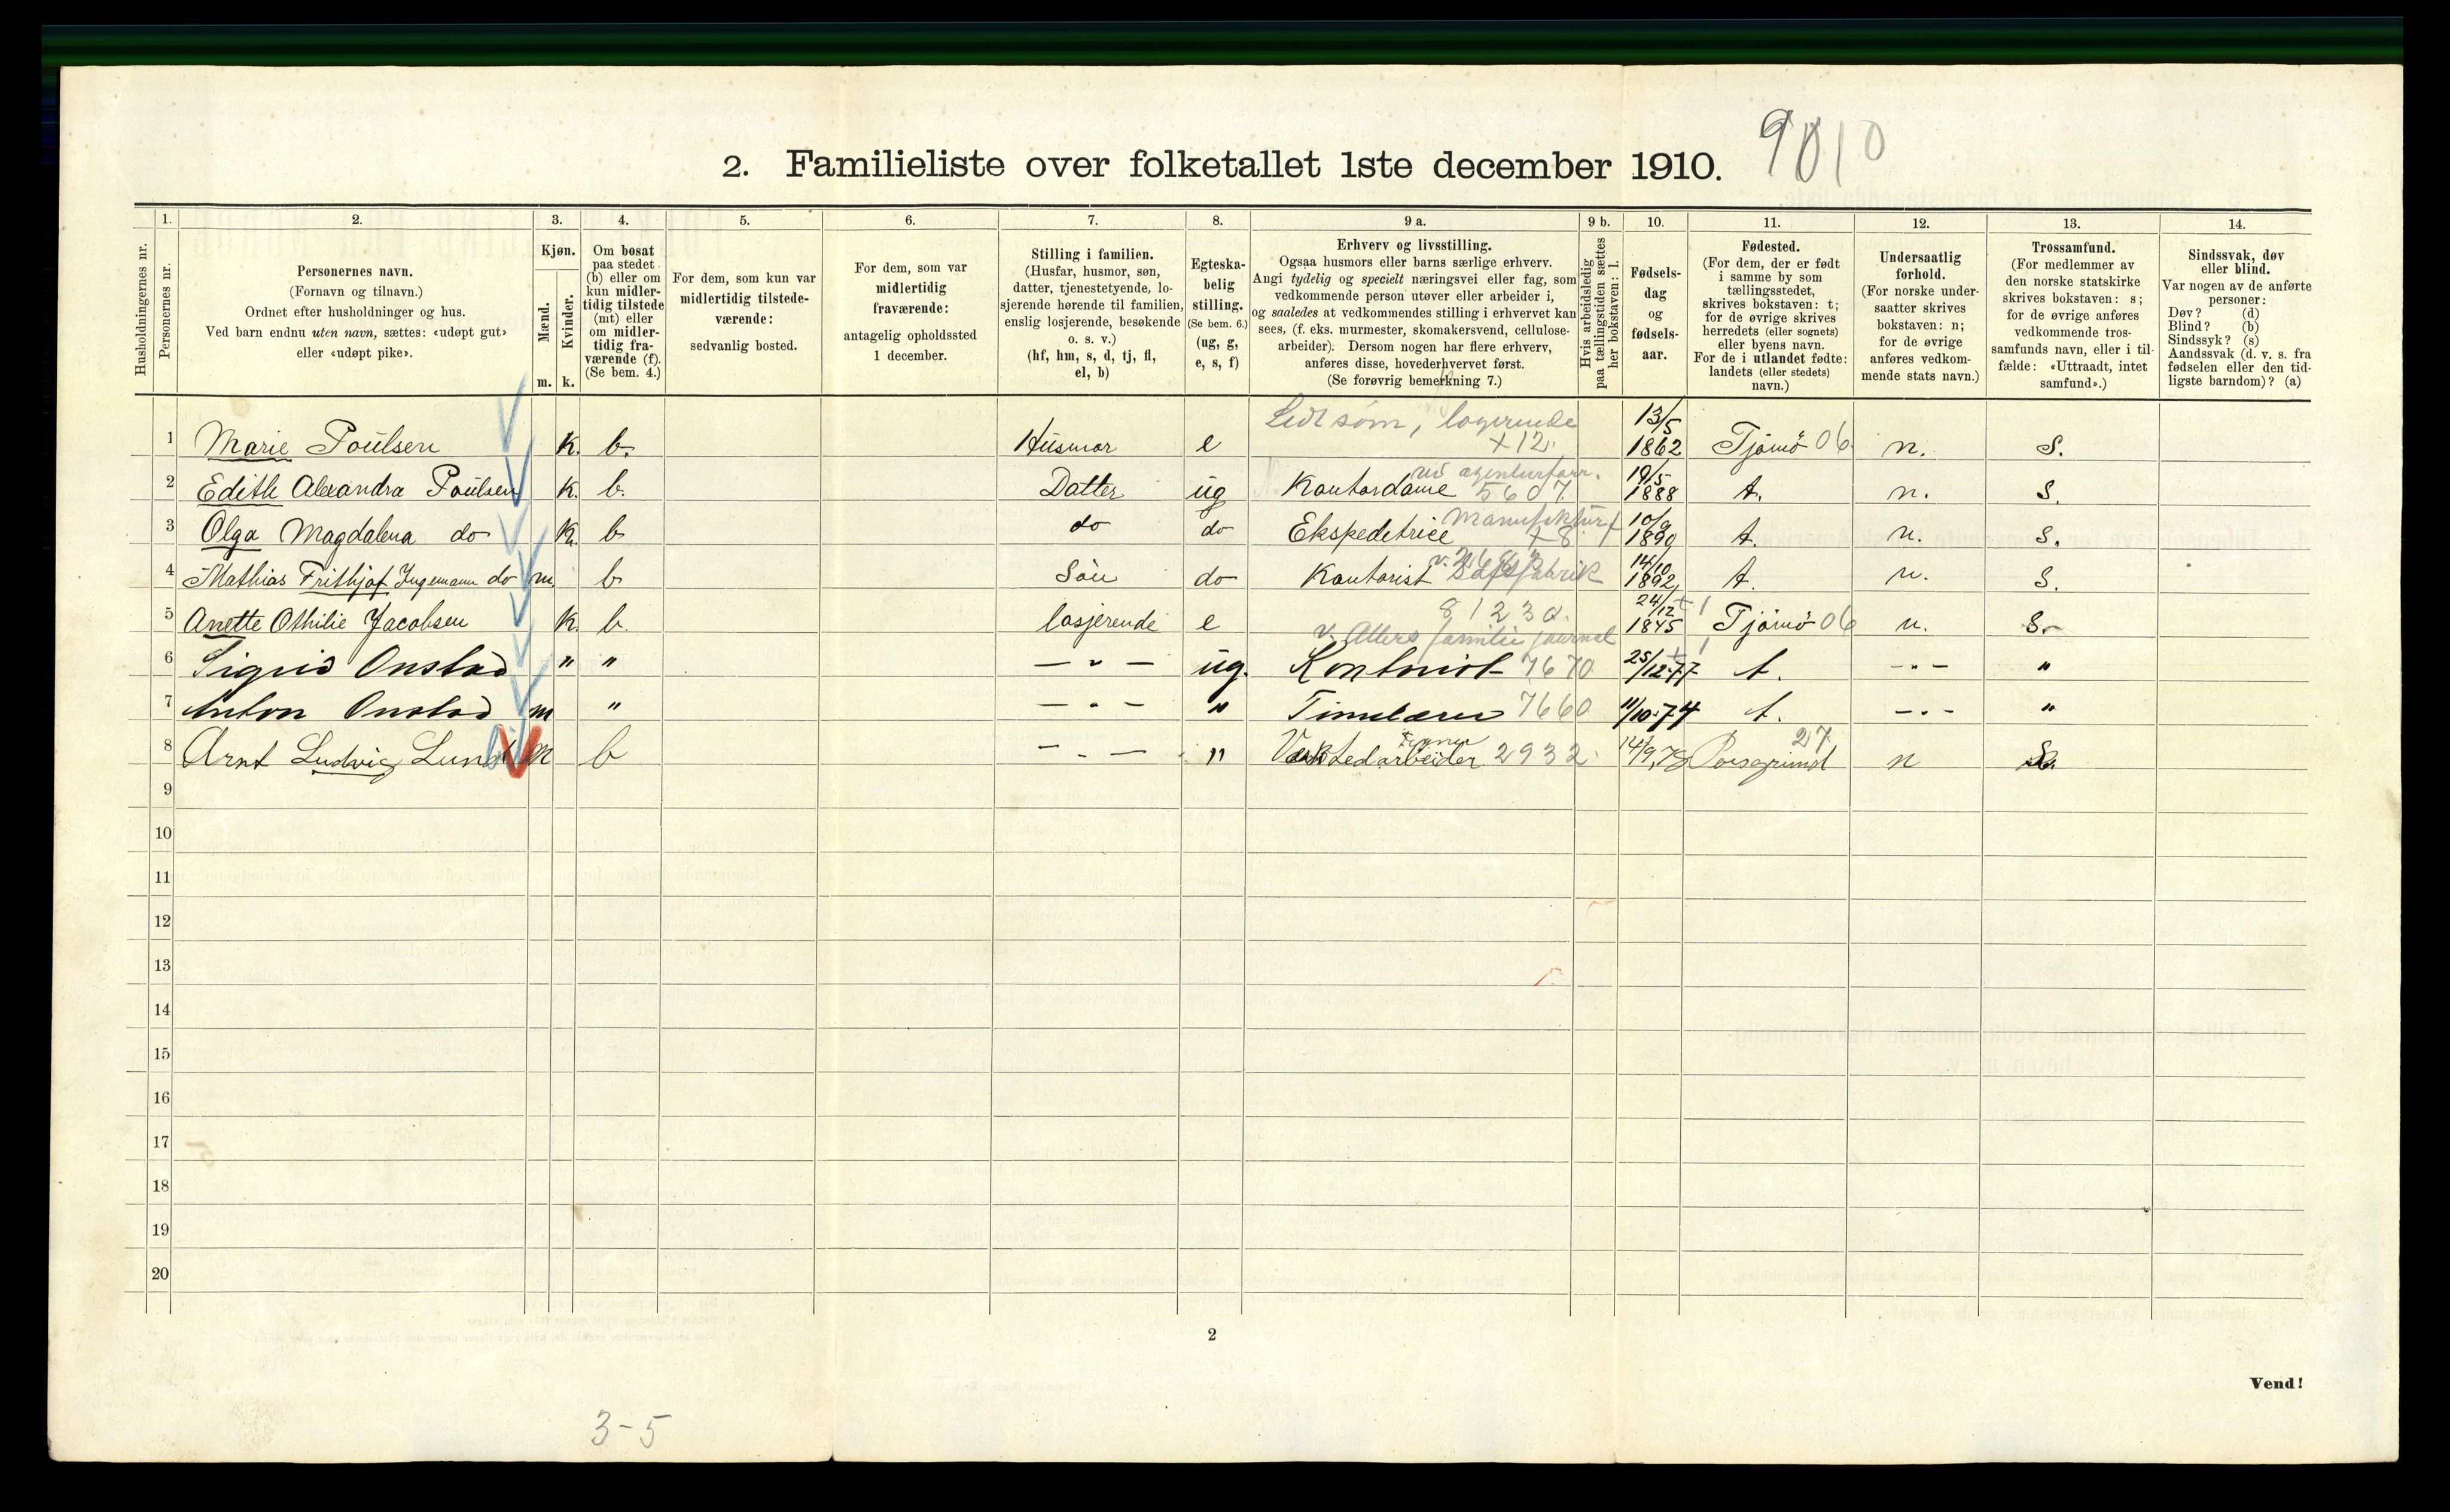 9010
2. Familieliste over folketallet 1ste december 1910.
Husholdningernes nr.
1. Personernes nr.
2. Personernes navn.
(Fornavn og tilnavn.)
Ordnet efter husholdninger og hus.
Ved barn endnu uten navn, sættes: «udøpt gut»
eller «udøpt pike».
3. Kjøn.
Mænd. m.
Kvinder. k.
4. Om bosat
paa stedet
(b) eller om
kun midler-
tidig tilstede
(mt) eller
om midler-
tidig fra-
værende (f).
(Se bem. 4.)
5. For dem, som kun var
midlertidig tilstede-
værende:
sedvanlig bosted.
6. For dem, som var
midlertidig
fraværende:
antagelig opholdssted
1 december.
7. Stilling i familien.
(Husfar, husmor, søn,
datter, tjenestetyende, lo-
sjerende hørende til familien,
enslig losjerende, besøkende
o. s. v.)
(hf, hm, s, d, tj, fl,
el, b)
8. Egteska-
belig
stilling.
(Se bem. 6.)
(ug, g,
e, s, f)
9 a. Erhverv og livsstilling.
Ogsaa husmors eller barns særlige erhverv.
Angi tydelig og specielt næringsvei eller fag, som
vedkommende person utøver eller arbeider i,
og saaledes at vedkommendes stilling i erhvervet kan
sees, (f. eks. murmester, skomakersvend, cellulose-
arbeider). Dersom nogen har flere erhverv,
anføres disse, hovederhvervet først.
(Se forøvrig bemerkning 7.)
9 b. Hvis arbeidsledig
paa tællingstiden sættes
her bokstaven: l.
10. Fødsels-
dag
og
fødsels-
aar.
11. Fødested.
(For dem, der er født
i samme by som
tællingsstedet,
skrives bokstaven: t;
for de øvrige skrives
herredets (eller sognets)
eller byens navn.
For de i utlandet fødte:
landets (eller stedets)
navn.)
12. Undersaatlig
forhold.
(For norske under-
saatter skrives
bokstaven: n;
for de øvrige
anføres vedkom-
mende stats navn.)
13. Trossamfund.
(For medlemmer av
den norske statskirke
skrives bokstaven: s;
for de øvrige anføres
vedkommende tros-
samfunds navn, eller i til-
fælde: «Uttraadt, intet
samfund».)
14. Sindssvak, døv
eller blind.
Var nogen av de anførte
personer:
Døv? (d)
Blind? (b)
Sindssyk? (s)
Aandssvak (d. v. s. fra
fødselen eller den tid-
ligste barndom)? (a)
1 Marie Poulsen k. b. Husmor e søm, logerende +12 13/5 1862 Tjømø 06 n. S.
2 Edith Alexandra Poulsen k. b. Datter ug Kontordame 5607 19/5 1888 t. n. S.
3 Olga Magdalena do k. b do do Ekspeditrice manufaktur +8 10/9 1890 t. n. S.
4 Mathias Frithjof Ingemann do m. b Sön do Kontorist v. fabrik 14/10 1892 t. n. S.
5 Anette Othilie Jacobsen k. b. losjerende e 8123 24/12 1845 Tjømø 06 n. S.
6 Sigrid Onstad " " — " — ug. Kontorist v. Allers familie journal 7670 25/12-77 t. - " - "
7 Anton Onstad m " — " — " Timelærer 7660 11/10-74 t. - " - "
8 Arnt Ludvig Lund m b - " — " Verkstedarbeider 2932 14/9,78 Porsgrund 27 n S.
9
10
11
12
13
14
15
16
17
18
19
20
2
Vend!
3-5